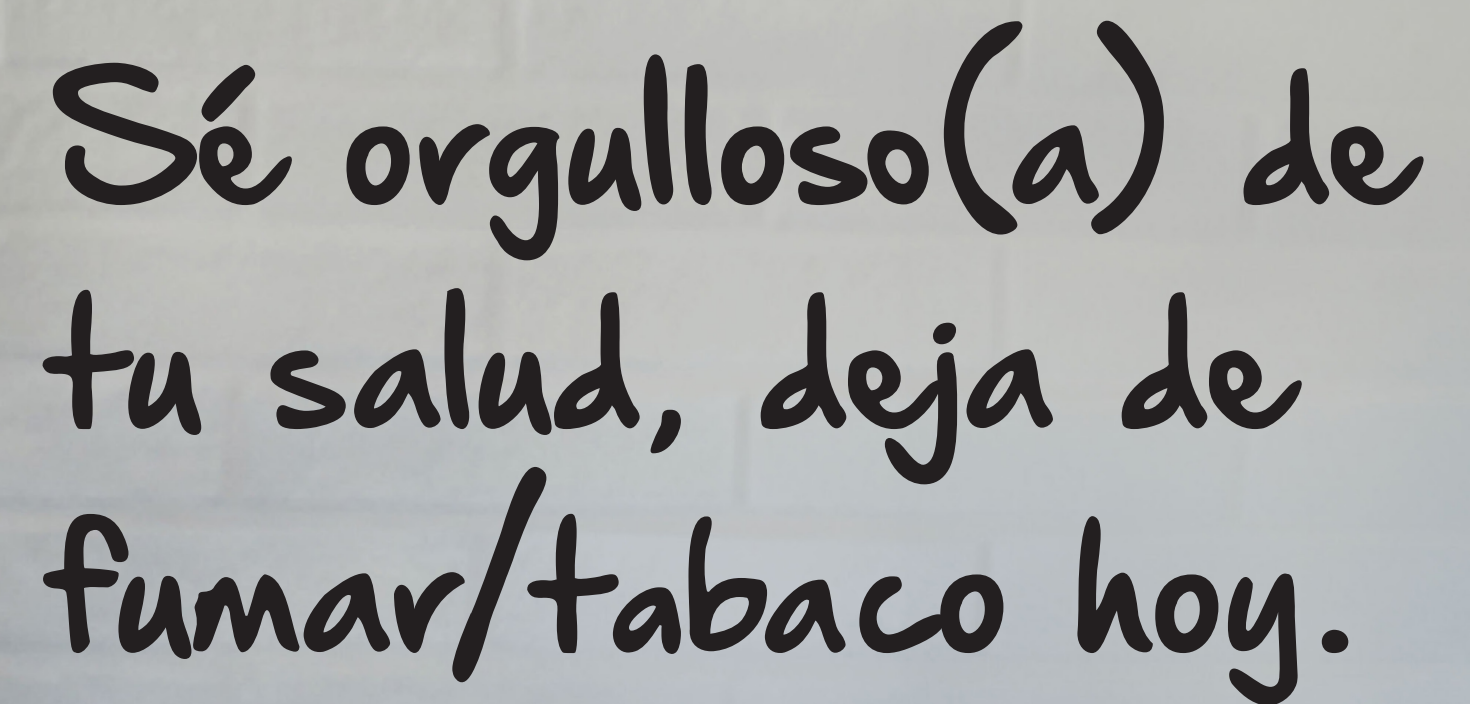 Sé orgulloso(a) de
tu salud, deja de
fumar/tabaco hoy.